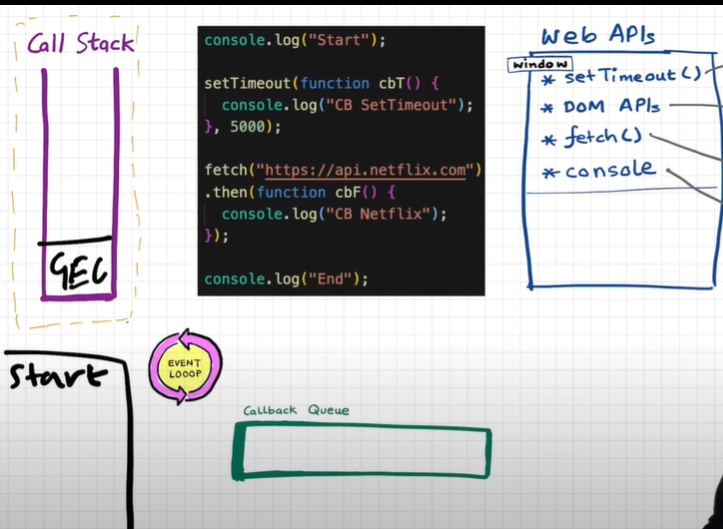 Call Stack
GEC
console.log("Start");
setTimeout(function cbT() {
console.log("CB SetTimeout");
}, 5000);
fetch("https://api.netflix.com")
.then(function cbF() {
console.log("CB Netflix");
});
console.log("End");
Web APIs
window
* setTimeout()
* DOM APIs
* fetch()
* console
Start
EVENT
LOOOP
Callback Queue